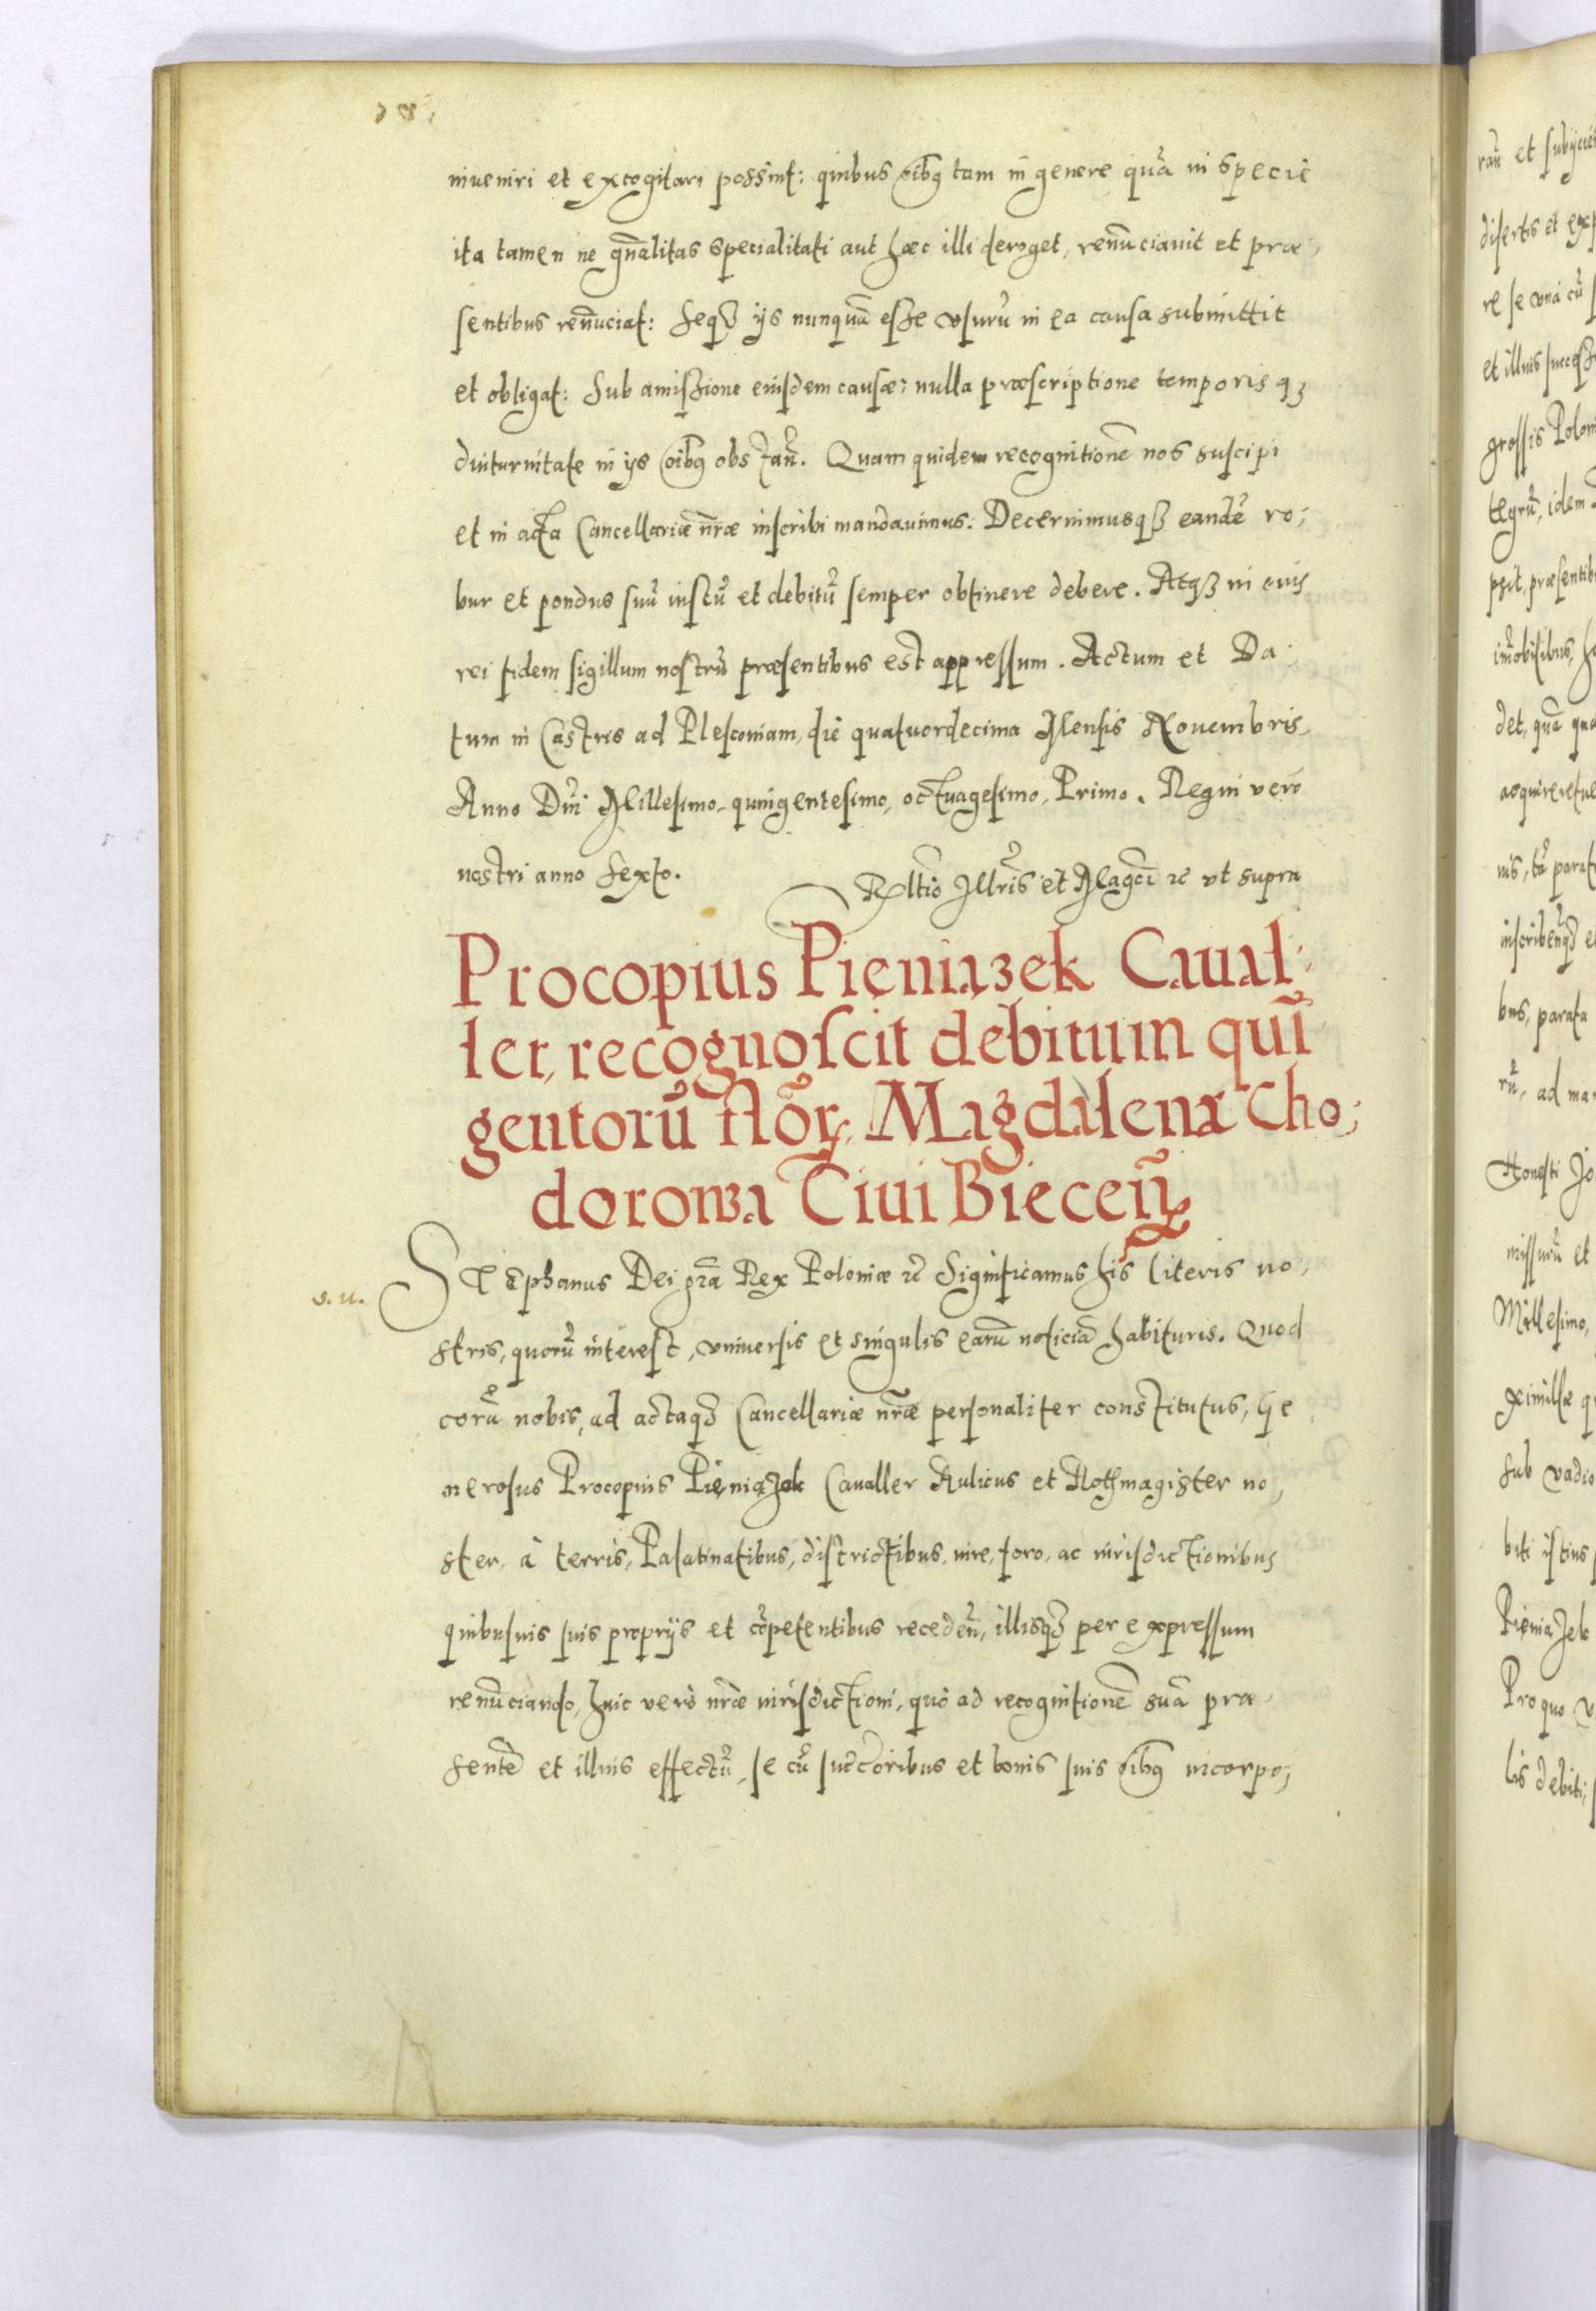 inueniri et excogitari possint: quibus oibꝯ tam in genere quã in specie
ita tamen ne gñalitas specialitati aut hæc illi deroget, renũciauit et præ,
sentibus renũciat: Seqꝫ ijs nunquã esse vsurũ in ea causa submittit
et obligat: sub amissione eiusdem causæ: nulla præscriptione temporis qꝫ
diuturnitate in ijs oibꝯ obstañ. Quam quidem recognitionẽ nos suscipi
et in acta Cancellariæ nr̃æ inscribi mandauimus. Decernimusqꝫ eandẽ ro,
bur et pondus suũ iustũ et debitũ semper obtinere debere. Atqꝫ in euis
rei fidem sigillum nostrũ præsentibus est appressum. Actum et Da,
tum in Castris ad Plesconiam, die quatuordecima Mensis Nouembris
Anno Dñi Millesimo, quingentesimo, octuagesimo, Primo. Regni vero
nostri anno Sexto.
Rltio Illr̃is et Magci ꝛc vt supra
Procopius Pieniązek Cawal,
ler, recognoscit debitum quĩ
gentorũ flõrꝝ, Magdalenæ Cho,
dorowa Ciui Bieceñ
s. u.
STephanus Dei grã Rex Poloniæ ꝛc Significamus his literis no,
stris, quorũ interest, vniuersis et singulis earũ noticiã habituris. Quod
corã nobis, ad actaqꝫ Cancellariæ nr̃æ personaliter constitutus, Ge
nerosus Procopius Pieniązek Cauallèr Aulicus et Rothmagister no,
ster, à terris, Palatinatibus, districtibus, iure, foro, ac iurisdictionibus
quibusuis suis proprijs et cõpetentibus recedeñ, illisqꝫ per expressum
renũciando, huic verò nr̃æ iurisdictioni, quò ad recognitionẽ suã præ,
sentẽ et illius effectũ, se cũ succoribus et bonis suis oibꝯ incorpo,